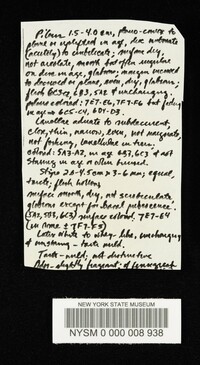 Pileus 1.5-4.0 cm, plano-convex to
plane or uplifted in age, disc subumbonate
(acutely) to umbilicate; surface dry,
not areolate, smooth but often rugulose
on disc in age, glabrous; margin incurved
to decurved or plane, even, dry, glabrous;
flesh 6C3, 6B3, 5B2 & unchanging;
pileus colored: 7E7-E6, 7F7-F6 but fading
in age → 6C5-C4, 6D4-D3.
Lamellae adnate to subdecurrent
close, thin, narrow, even, not marginate,
not forking, lamellulae in tiers,
colored: 5A3-A2 in age 6B3, 6C3 & not
staining in age or when bruised.
Stipe 2.0-4.5 cm x 3-6 mm; equal,
terete; flesh hollow,
surface smooth, dry, not scrobiculate
glabrous except for basal pubescence.
(5A3, 5B3, 6C3) surface colored: 7E7-E4
(in some ± 7F7-F5)
Latex white to whey-like, unchanging
& unstaining - taste mild.
Taste - mild; not distinctive
Odor - slightly fragrant; of fenugreek
NEW YORK STATE MUSEUM
NYSM 0 000 008 938